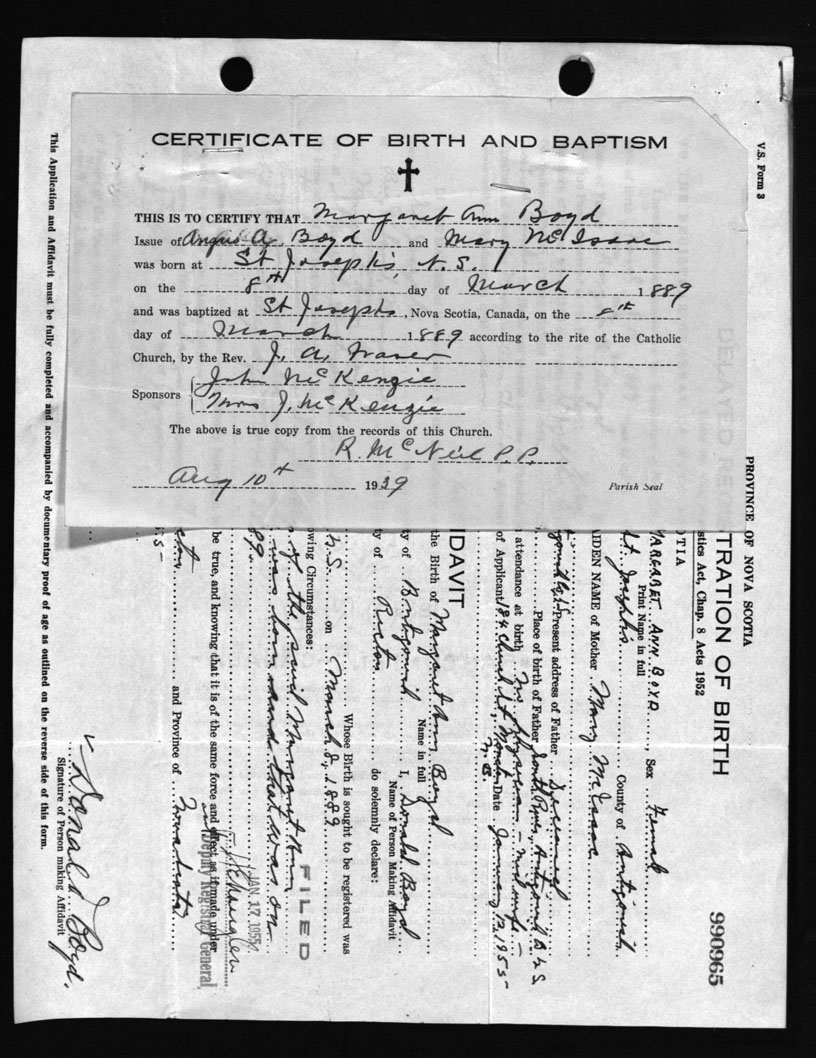 CERTIFICATE OF BIRTH AND BAPTISM
THIS IS TO CERTIFY THAT Margaret Ann Boyd
Issue of Angus A. Boyd and Mary McIsaac
was born at St Joseph's, N.S.
on the 8th day of March 1889
and was baptized at St Josephs, Nova Scotia, Canada, on the 8th
day of March 1889 according to the rite of the Catholic
Church, by the Rev. J. A. Fraser
Sponsors
John McKenzie
Mrs J. McKenzie
The above is true copy from the records of this Church.
R. McNeil P.P.
Aug 10th 1939 Parish Seal
V.S. Form 3
990965
PROVINCE OF NOVA SCOTIA
TRATION OF BIRTH
stics Act, Chap. 8 Acts 1952
OTIA
MARGARET ANN BOYD, Sex Female
Print Name in full
St. Josephs County of Antigonish
AIDEN NAME of Mother Mary McIsaac
Present address of Father Deceased
Place of birth of Father South River Antigonish N.S.
attendance at birth No physician - midwife -
of Applicant 184 Church St, Moncton Date January 12, 1955
N.B.
IDAVIT
the Birth of Margaret Ann Boyd
Name in full
ty of Antigonish I, Donald Boyd
Name of Person Making Affidavit
ty of Pictou do solemnly declare:
Whose Birth is sought to be registered was
N.S. on March 8, 1889
owing Circumstances:
of the said Margaret Ann
was born and that was on
89.
FILED
JAN 17 1955
Deputy Registrar General
be true, and knowing that it is of the same force and effect as if made under
ctou and Province of Nova Scotia
Donald Boyd.
Signature of Person making Affidavit
This Application and Affidavit must be fully completed and accompanied by documentary proof of age as outlined on the reverse side of this form.